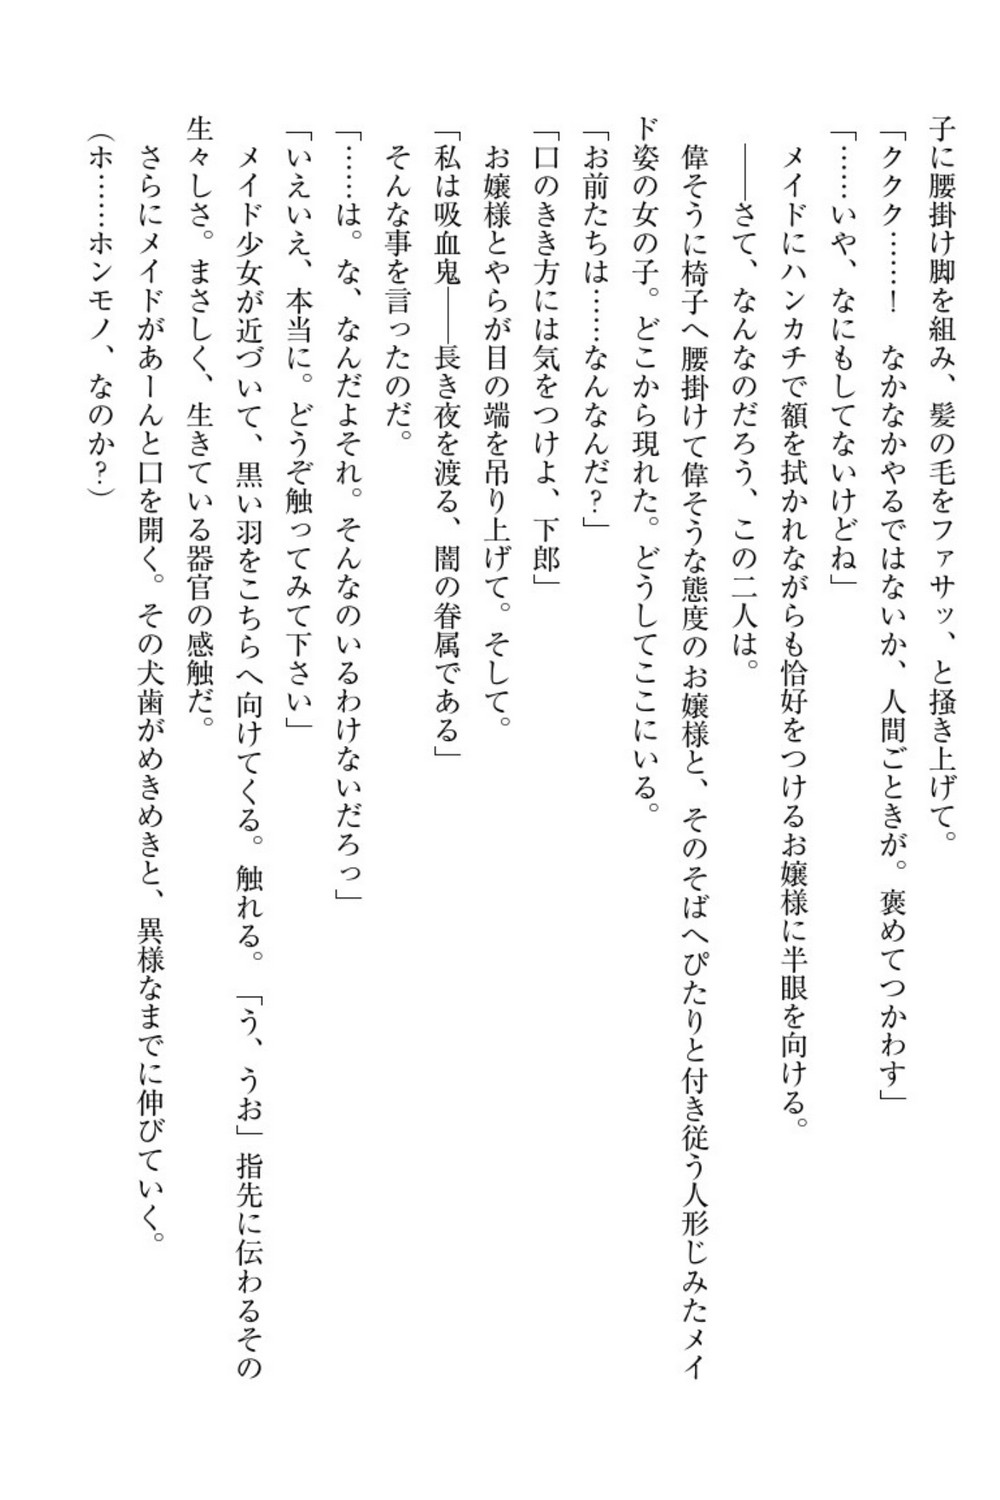 子に腰掛け脚を組み、髪の毛をファサッ、と掻き上げて。
「ククク……！　なかなかやるではないか、人間ごときが。褒めてつかわす」
「……いや、なにもしてないけどね」
　メイドにハンカチで額を拭かれながらも恰好をつけるお嬢様に半眼を向ける。
　――さて、なんなのだろう、この二人は。
　偉そうに椅子へ腰掛けて偉そうな態度のお嬢様と、そのそばへぴたりと付き従う人形じみたメイ
ド姿の女の子。どこから現れた。どうしてここにいる。
「お前たちは……なんなんだ？」
「口のきき方には気をつけよ、下郎」
　お嬢様とやらが目の端を吊り上げて。そして。
「私は吸血鬼――長き夜を渡る、闇の眷属である」
　そんな事を言ったのだ。
「……は。な、なんだよそれ。そんなのいるわけないだろっ」
「いえいえ、本当に。どうぞ触ってみて下さい」
　メイド少女が近づいて、黒い羽をこちらへ向けてくる。触れる。「う、うお」指先に伝わるその
生々しさ。まさしく、生きている器官の感触だ。
　さらにメイドがあーんと口を開く。その犬歯がめきめきと、異様なまでに伸びていく。
（ホ……ホンモノ、なのか？）